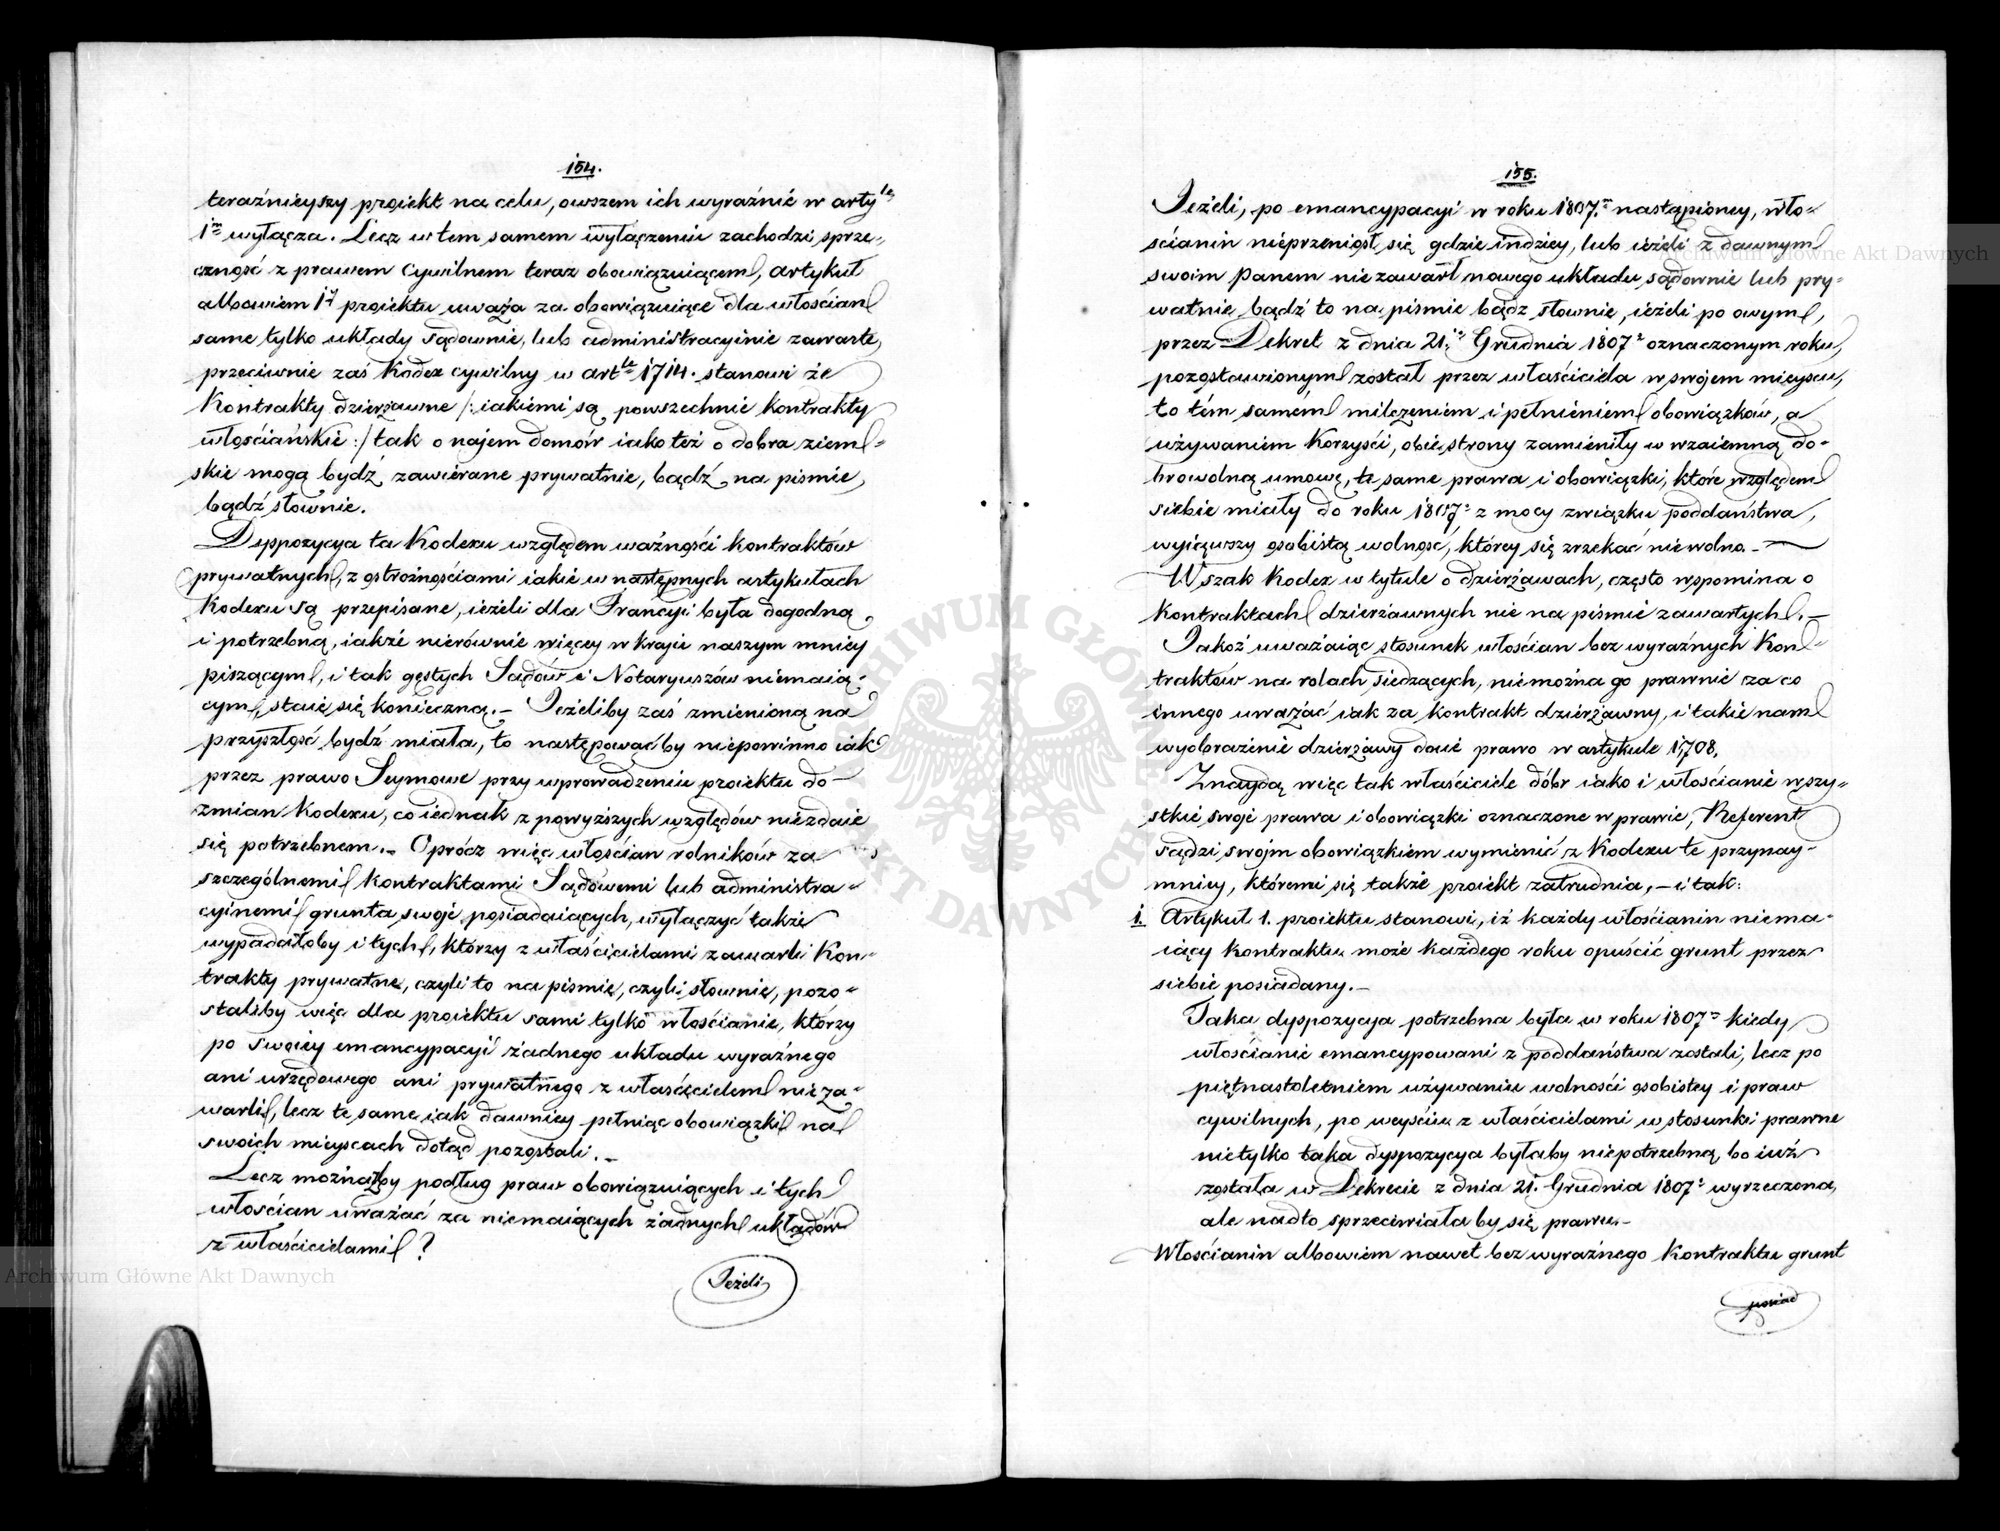 154.
teraźnieyszy proiekt na celu, owszem ich wyraźnie w arty le
1m wyłącza. Lecz w tem samem wyłączeniu zachodzi sprze-
czność z prawem cywilnem teraz obowiązuiącem, artykuł
albowiem 1y proiektu uważa za obowiązuiące dla włościan
same tylko układy sądownie, lub administracyinie zawarte,
przeciwnie zaś Kodex cywilny w art le 1714. stanowi że
Kontrakty dzierżawne /: iakiemi są powszechnie kontrakty
włościańskie :/ tak o najem domów iako też o dobra ziem-
skie mogą bydź zawierane prywatnie, bądź na piśmie,
bądź słownie.
Dyspozycya ta Kodexu względem ważności kontraktów
prywatnych, z ostrożnościami iakie w następnych artykułach
Kodexu są przepisane, ieżeli dla Francyi była dogodną
i potrzebną, iakże nierównie więcey w kraju naszym mniey
piszącym, i tak gęstych Sądów i Notaryuszów niemaią-
cym, staie się konieczną. – Jeżeliby zaś zmienioną na
przyszłość bydź miała, to następować by niepowinno iak
przez prawo Seymowe przy wprowadzeniu proiektu do
zmian Kodexu, co iednak z powyższych względów niezdaie
się potrzebnem. – Oprócz więc włościan rolników za
szczególnemi kontraktami Sądowemi lub administra-
cyinemi grunta swoje posiadaiących, wyłączyć także
wypadałoby i tych, którzy z właścicielami zawarli Kon-
trakty prywatne, czyli to na piśmie, czyli słownie, pozo-
staliby więc dla proiektu sami tylko włościanie, którzy
po swoiey emancypacyi żadnego układu wyraźnego
ani urzędowego ani prywatnego z właścicielem nie za-
warli, lecz te same iak dawniey pełniąc obowiązki na
swoich mieyscach dotąd pozostali. –
Lecz możnaby podług praw obowiązuiących i tych
włościan uważać za niemaiących żadnych układów
z właścicielami ?
Jeżeli
155.
Jeżeli, po emancypacyi w roku 1807.m nastąpioney, wło-
ścianin nieprzeniósł się gdzie indziey, lub ieżeli z dawnym
swoim Panem nie zawarł nowego układu sądownie lub pry-
watnie bądź to na piśmie bądź słownie, ieżeli po owym,
przez Dekret z dnia 21. Grudnia 1807 r oznaczonym roku,
pozostawionym został przez właściciela w swojem mieyscu,
to tém samém milczeniem i pełnieniem obowiązków, a
używaniem Korzyści, obie strony zamieniły w wzaiemną do-
browolną umowę, te same prawa i obowiązki, które względem
siebie miały do roku 1807 z mocy związku poddaństwa,
wyiąwszy osobistą wolność, którey się zrzekać niewolno. –
Wszak Kodex w tytule o dzierżawach, często wspomina o
Kontraktach dzierżawnych nie na piśmie zawartych. –
Jakoż uważaiąc stosunek włościan bez wyraźnych Kon-
traktów na rolach siedzących, niemożna go prawnie za co
innego uważać iak za kontrakt dzierżawny, i takie nam
wyobrażenie dzierżawy daie prawo w artykule 1708.
Znaydą więc tak właściciele dóbr iako i włościanie wszy-
stkie swoje prawa i obowiązki oznaczone w prawie, Referent
sądzi swoim obowiązkiem wymienić z Kodexu te przynay-
mniey, któremi się także proiekt zatrudnia, – i tak:
1. Artykuł 1. proiektu stanowi, iż każdy włościanin niema-
iący kontraktu może każdego roku opuścić grunt przez
siebie posiadany. –
Taka dyspozycya potrzebna była w roku 1807m kiedy
włościanie emancypowani z poddaństwa zostali, lecz po
piętnastoletniem używaniu wolności osobistey i praw
cywilnych, po weyściu z właścicielami w stosunki prawne
nietylko taka dyspozycya byłaby niepotrzebną, bo iuż
została w Dekrecie z dnia 21. Grudnia 1807 r wyrzeczona,
ale nadto sprzeciwiała by się prawu. –
Włościanin albowiem nawet bez wyraźnego Kontraktu grunt
posiad
Archiwum Główne Akt Dawnych
Archiwum Główne Akt Dawnych
ARCHIWUM GŁÓWNE AKT DAWNYCH